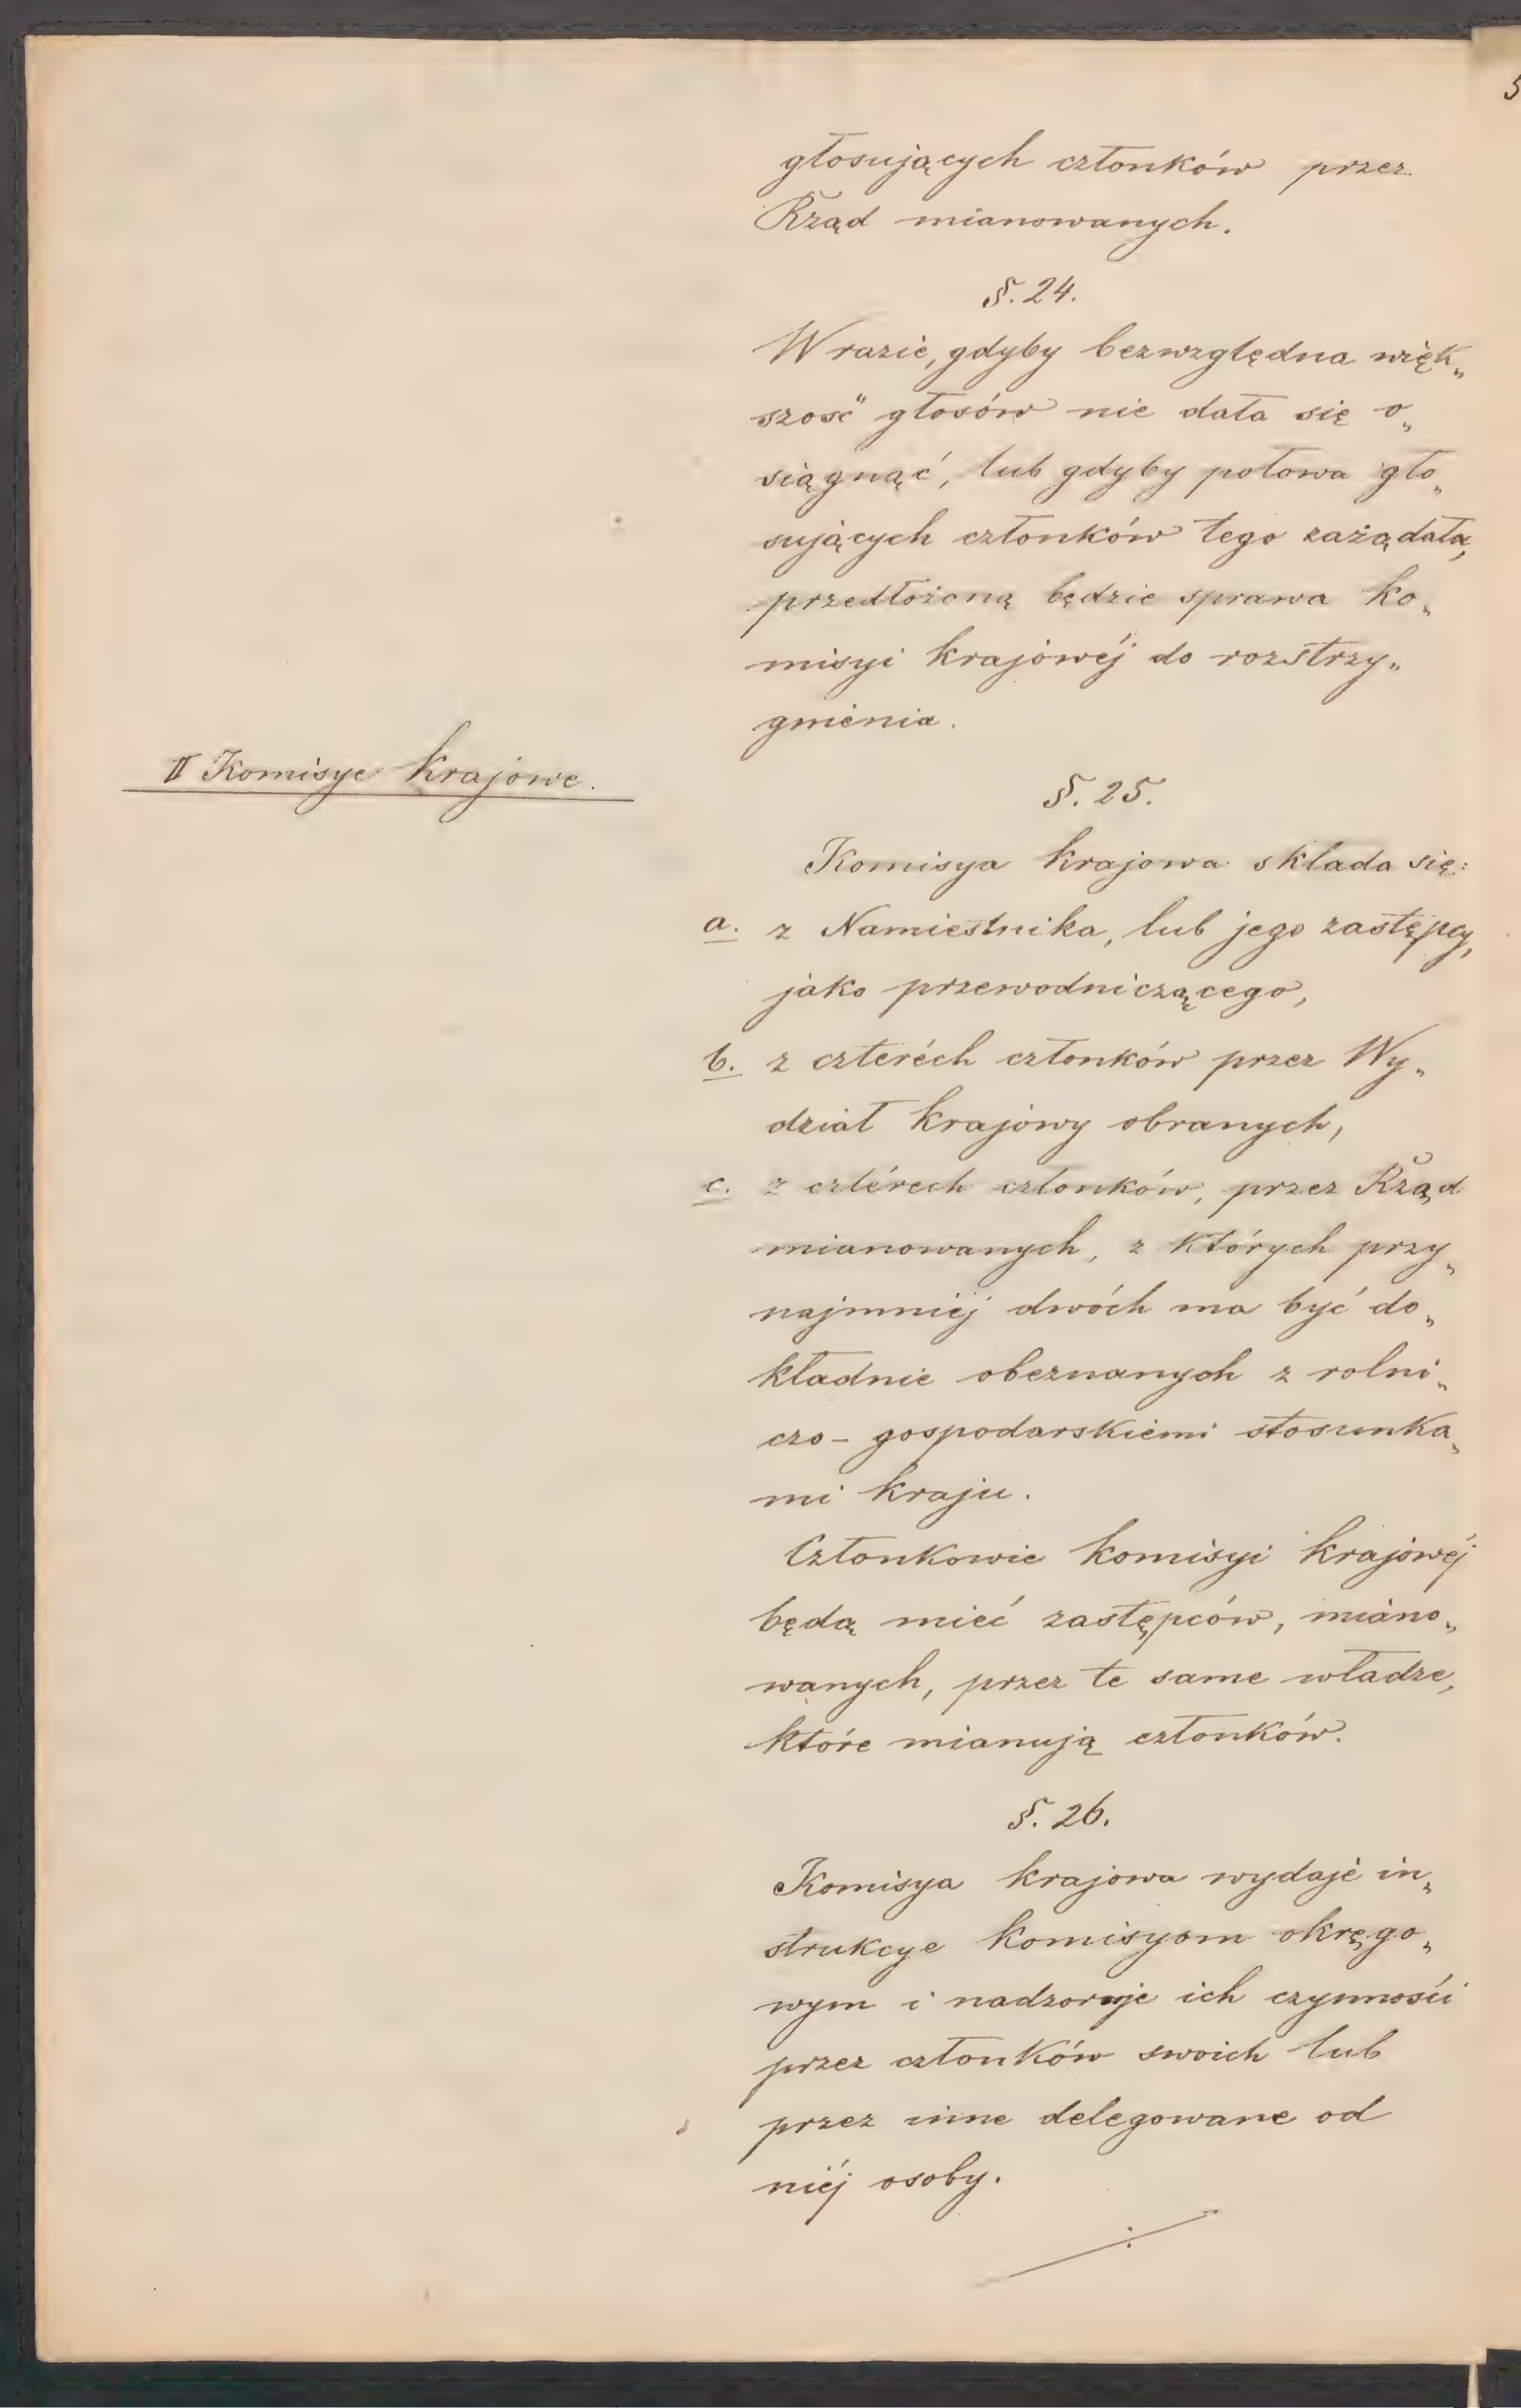 głosujących członków przez
Rząd mianowanych.
§. 24.
W razie, gdyby bezwzględna więk„
szość głosów nie dała się o„
siągnąć, lub gdyby połowa gło„
sujących członków tego zażądała,
przedłożoną będzie sprawa ko„
misyi krajowéj do rozstrzy„
gnienia.
II Komisye krajowe.
§. 25.
Komisya krajowa składa się:
a. z Namiestnika, lub jego zastępcy,
jako przewodniczącego,
b. z czteréch członków przez Wy„
dział krajowy obranych,
c. z czteréch członków, przez Rząd
mianowanych, z których przy„
najmniéj dwóch ma być do„
kładnie obeznanych z rolni„
czo- gospodarskiemi stosunka„
mi kraju.
Członkowie komisyi krajowéj
będą mieć zastępców, miano„
wanych, przez te same władze,
które mianują członków.
§. 26.
Komisya krajowa wydaje in„
strukcye komisyom okręgo„
wym i nadzoruje ich czynności
przez członków swoich lub
przez inne delegowane od
niéj osoby.